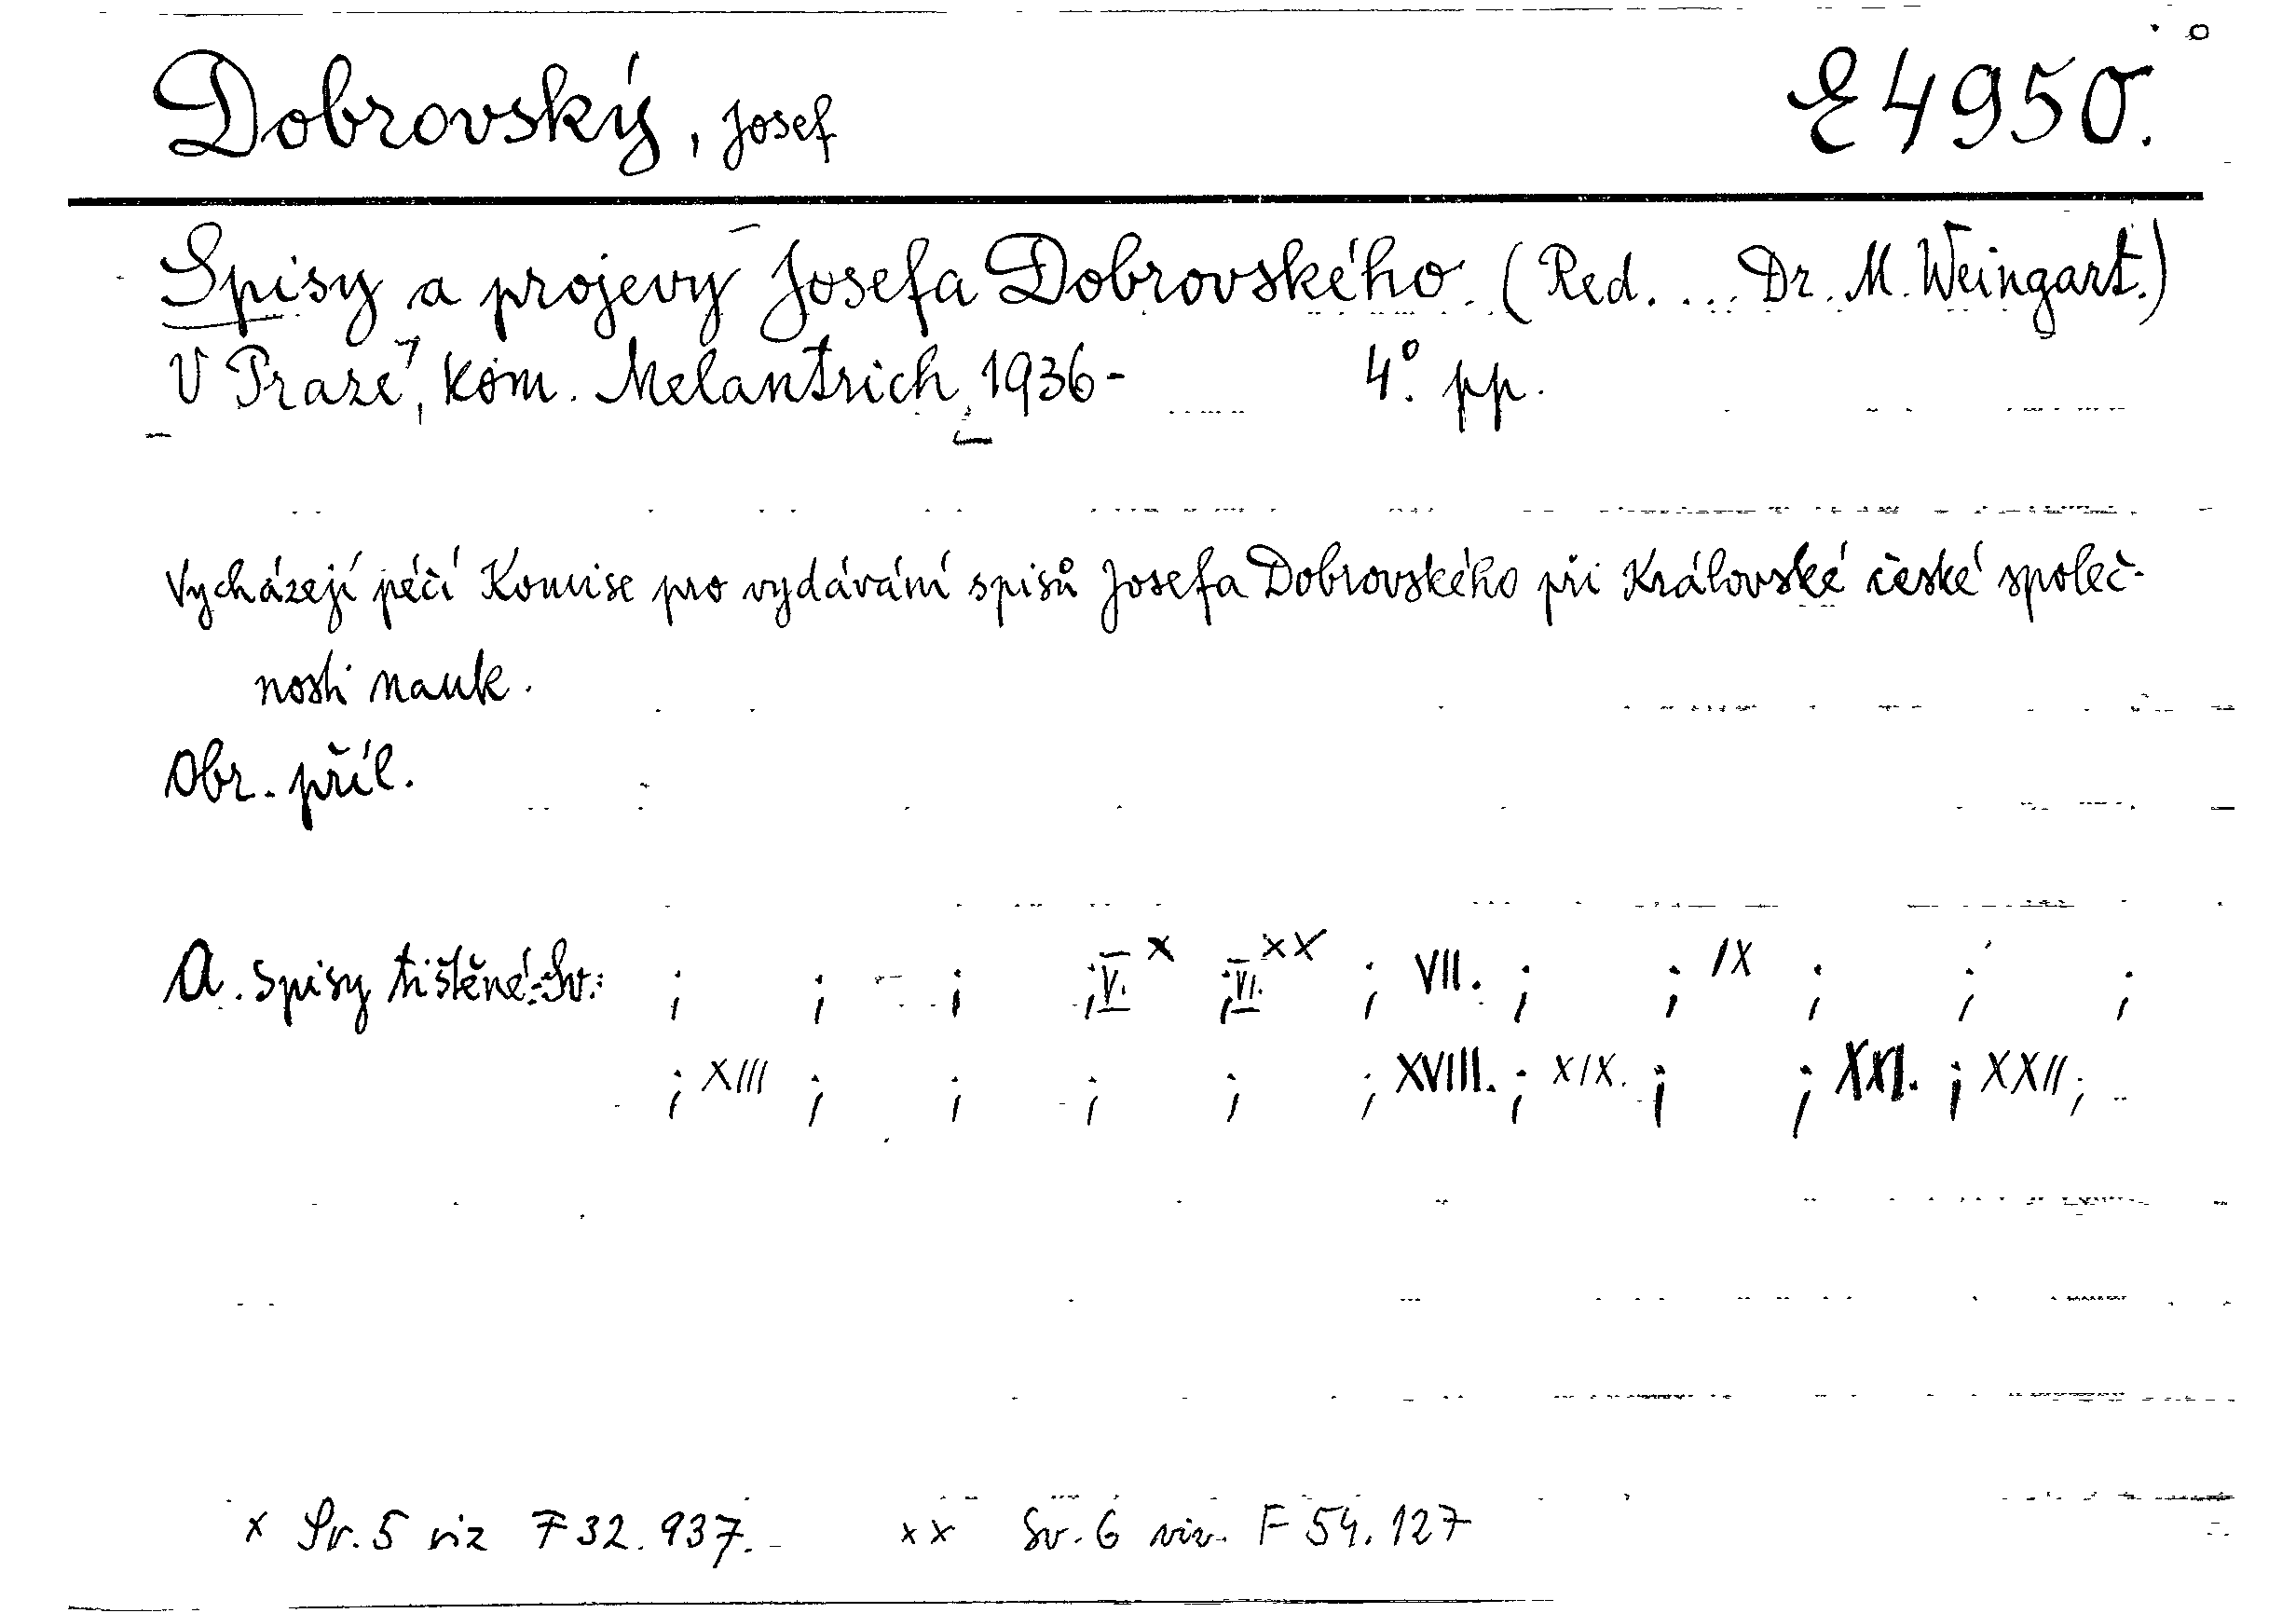 Dobrovský, Josef E 4950.
Spisy a projevy Josefa Dobrovského. (Red. ... Dr. M. Weingart.)
V Praze, kom. Melantrich, 1936- 4°. pp.
Vycházejí péčí Komise pro vydávání spisů Josefa Dobrovského při Královské české společ-
nosti nauk.
Obr. příl.
A. Spisy tištěné: Sv.: ; ; ; ; V. x ; VI. xx ; VII. ; ; IX ; ; ;
; XIII ; ; ; ; ; XVIII. ; XIX. ; ; XXI. ; XXII ;
x Sv. 5 viz F 32.937. xx Sv. 6 viz. F 54.127